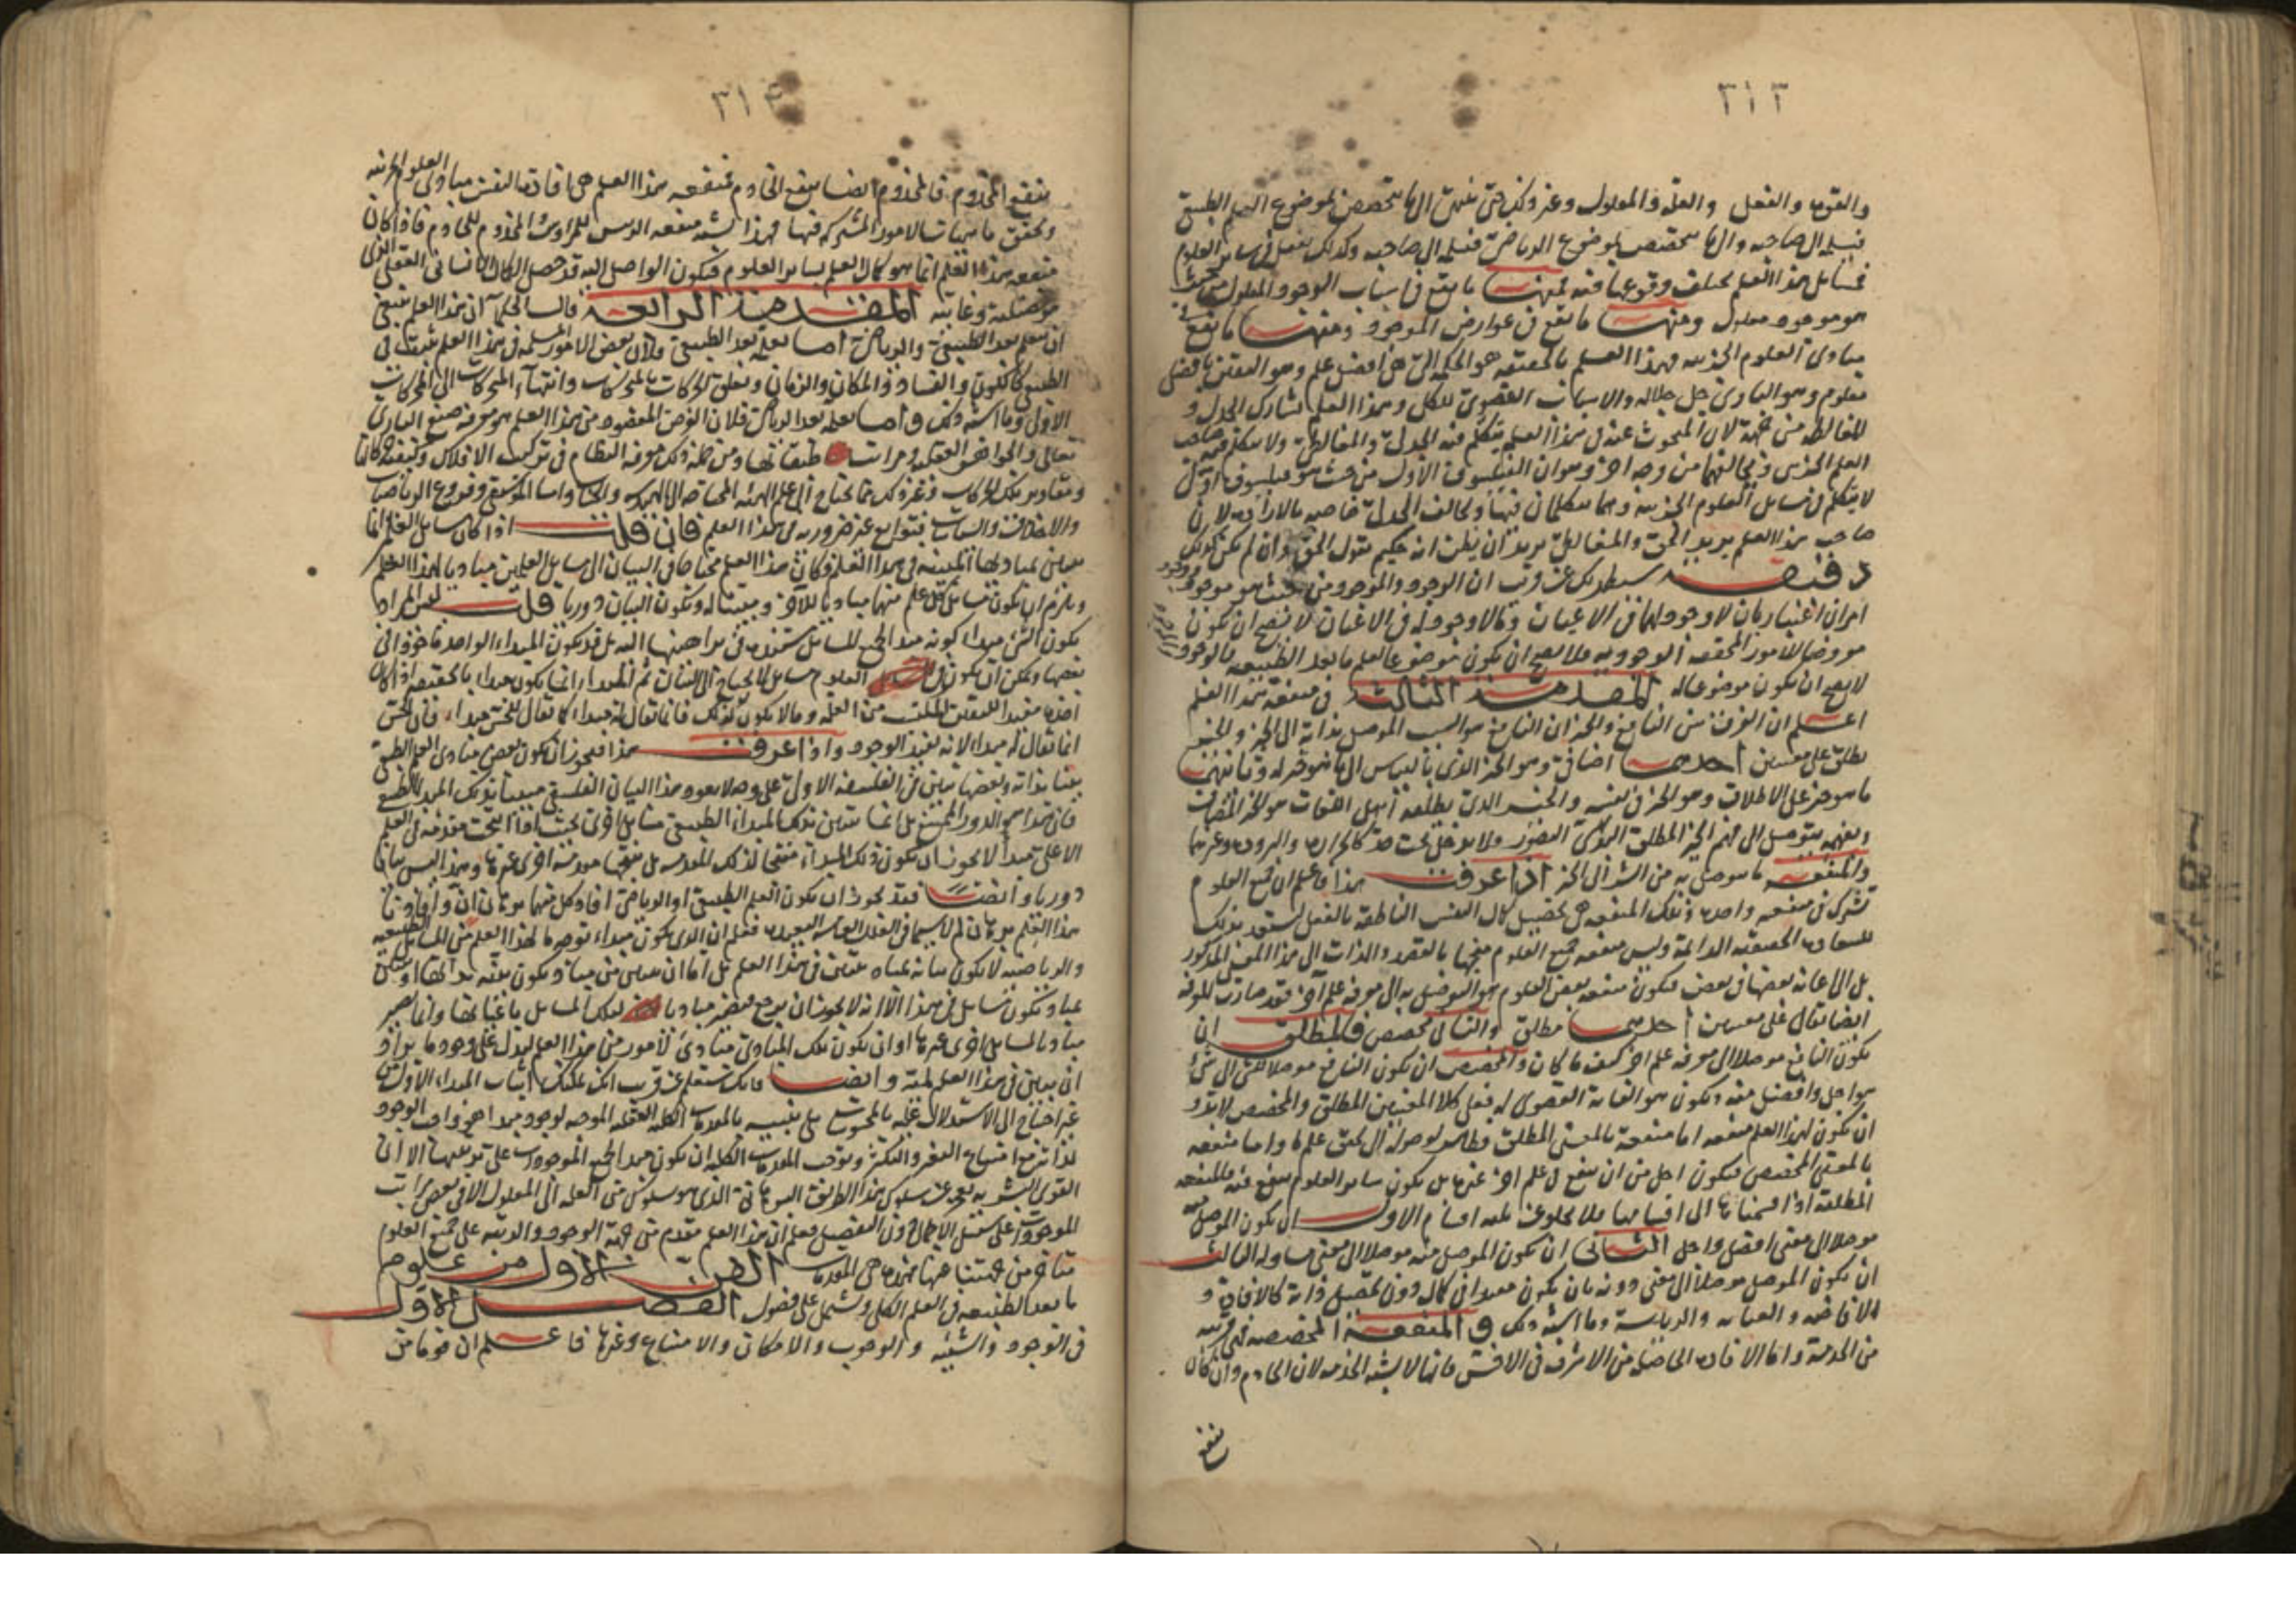 ٣١٣
والقوة والفعل والعلة والمعلول وغير ذلك حتى ينتهي الى ما يتخصص لموضوع العلم الطبيعي
فيسلمه الى صاحبه والى ما يتخصص بموضوع الرياضي فيسلمه الى صاحبه وكذلك يفعل في سائر العلوم
فمسائل هذا العلم يختلف وقوعها فيه فمنها ما يقع في اسباب الوجود المعلول من حيث
هو موجود معلول ومنها ما يقع في عوارض الموجود ومنها ما يقع في
مبادئ العلوم الجزئية فهذا العلم بالحقيقة هو الحكمة التي هي افضل علم وهو اليقين بافضل
معلوم وهو البارئ جل جلاله والاسباب القصوى للكل وهذا العلم يشارك الجدل و
المغالطة من جهة لان المبحوث عنه في هذا العلم يتكلم فيه الجدلي والمغالطي ولا يتكلم فيه صاحب
العلم الجزئي ويخالفهما من وجه آخر وهو ان الفيلسوف الاول من حيث هو فيلسوف اول
لا يتكلم في مسائل العلوم الجزئية وهما يتكلمان فيها ويخالف الجدلي خاصة بالارادة لان
صاحب هذا العلم يريد الحق والمغالطي يريد ان يظن انه حكيم يقول الحق وان لم يكن كذلك
دقيقة سيظهر لك عن قريب ان الوجود والموجود من حيث هو موجود
امران اعتباريان لا وجود لهما في الاعيان وما لا وجود له في الاعيان لا يصح ان يكون
معروضا للامور المحققة الوجودية فلا يصح ان يكون موضوعا لعلم ما بعد الطبيعة فالوجود
لا يصح ان يكون موضوعا له المقدمة الثالثة في منفعة هذا العلم
اعلم ان الفرق بين النافع والخير ان النافع هو السبب الموصل بذاته الى الخير والخير
يطلق على معنيين احدهما اضافي وهو الخير الذي بالقياس الى ما هو خير له وثانيهما
ما هو خير على الاطلاق وهو الخير في نفسه والخير الذي يطلقه اهل اللغات هو الخير المضاف
وبفهمه يتوصل الى فهم الخير المطلق البديهي التصور ولا يدخل تحت حد كالحرارة والبرودة وغيرهما
والمنفعة ما يتوصل به من الشر الى الخير اذا عرفت هذا فاعلم ان جميع العلوم
تشترك في منفعة واحدة وتلك المنفعة هي تحصيل كمال النفس الناطقة بالفعل لتستعد بذلك
للسعادة الحقيقية الدائمة وليس منفعة جميع العلوم متجها بالقصد والذات الى هذا المعنى المذكور
بل الى اعانة بعضها في بعض فيكون منفعة بعض العلوم هو التوصل به الى معرفة علم آخر فقد صارت المنفعة
ايضا تقال على معنيين احدهما مطلق والثاني مخصص فالمطلق ان
يكون النافع موصلا الى معرفة علم آخر كيف ما كان والمخصص ان يكون النافع موصلا للشيء الى شيء
هو اجل وافضل منه ويكون هو الغاية القصوى له فعلى كلا المعنيين المطلق والمخصص لا بد و
ان يكون لهذا العلم منفعة اما منفعة بالمعنى المطلق فظاهر لوصوله الى تحقق علم ما واما منفعة
بالمعنى المخصص فيكون اجل من ان ينفع في علم آخر غيره بل يكون سائر العلوم ينفع فيه فالمنفعة
المطلقة اذا قسمناها الى اقسامها فلا يخلو عن ثلثة اقسام الاول ان يكون الموصل منه
موصلا الى معنى افضل واجل الثاني ان يكون الموصل منه موصلا الى معنى مساو له الثالث
ان يكون الموصل موصلا الى معنى دونه بان يكون مفيدا في كمال دون تحصيل ذاته كالافادة و
الافاضة والعناية والرياسة وما اشبه ذلك والمنفعة المخصصة فهي قريبة
من الخدمة واما الافادة الحاصلة من الاشرف في الاخس فانها لا يشبه الخدمة لان الخادم وان كان
ينفع
٣١٤
ينفع المخدوم فالمخدوم ايضا ينفع الخادم فمنفعة هذا العلم هي افادة اليقين بمبادئ العلوم الجزئية
وتحقق ماهيات الامور المشتركة فيها فهذا يشبه منفعة الرئيس للمرؤوس والمخدوم للخادم فاذا كان
منفعة هذا العلم انما هو كمال العلم بسائر العلوم فيكون الواصل اليه قد حصل الكمال الانساني العقلي الذي
هو فضيلته وغايته المقدمة الرابعة قالت الحكماء ان هذا العلم ينبغي
ان يتعلم بعد الطبيعي والرياضي اما بعلمه بعد الطبيعي فلان بعض الامور المسلمة في هذا العلم تثبت في
الطبيعي كالكون والفساد والمكان والزمان وتعلق الحركات بالمحركات وانتهاء المتحركات الى المحركات
الاولى وما اشبه ذلك واما بعلمه بعد الرياضي فلان الغرض المقصود من هذا العلم هو معرفة صنع البارئ
تعالى والجواهر العقلية ومراتب طبقاتها ومن جملة ذلك معرفة النظام في تركيب الافلاك وكيفية حركاتها
ومقادير تلك الحركات وغير ذلك مما يحتاج الى علم الهيئة المحتاجة الى الهندسة والحساب واما الموسيقى وفروع الرياضيات
والاخلاق والسياسات فتوابع غير ضرورية في هذا العلم فان قلت اذا كان مسائل العلم انما
يتبين بمبادئها المبينة في هذا العلم وكان هذا العلم محتاجا في البيان الى مسائل العلمين مبادئا لهذا العلم
ويلزم ان يكون مسائل كل علم منهما مبادئا للآخر ومبينا له ويكون البيان دوريا قلت ليس المراد
بكون الشيء مبدأ كونه مبدأ لجميع المسائل يستند في براهينها اليه بل قد يكون المبدأ الواحد مأخوذا في
بعضها ويمكن ان يكون في العلوم مسائل لا يحتاج الى البيان ثم المبدأ انما يكون مبدأ بالحقيقة اذا كان
اخذه مفيدا لليقين المكتسب من العلة وما لا يكون كذلك فانما يقال له مبدأ كما يقال للحس مبدأ، فان الحس
انما يقال له مبدأ لانه يفيد الوجود واذا عرفت هذا فيجوز ان يكون بعض مبادئ العلم الطبيعي
بينا بذاته وبعضها يتبين في الفلسفة الاولى على وجه لا يعود هذا البيان الفلسفي مبينا بذلك المبدأ الطبيعي
فان هذا هو الدور الممتنع بل انما يتبين بذلك المبدأ الطبيعي مسائل اخرى بحيث اذا انتجت مقدمة في العلم
الاعلى مبدأ لا يجوز ان يكون ذلك المبدأ منتجا لتلك المقدمة بل ينتجها مقدمة اخرى غيرها وهذا ليس بيانا
دوريا وايضا فقد يجوز ان يكون العلم الطبيعي او الرياضي افاد كل منهما برهان ان وافادنا
هذا العلم برهان لم لا سيما في العلل الغائية البعيدة فعلم ان الذي يكون مبدأ بوجه ما لهذا العلم من المسائل الطبيعية
والرياضية لا يكون بيانه بمباد يتبين في هذا العلم بل اما ان يتبين من مباد يكون بينة بذاتها او يتبين
بمباد تكون مسائل في هذا الا انه لا يجوز ان يرجع فيصير مبادئا لتلك المسائل باعيانها وانما يصير
مبادئا لمسائل اخرى غيرها او ان يكون تلك المبادئ مبادئ لامور من هذا العلم ليدل على وجود ما يراد
ان يتبين في هذا العلم لميته وايضا فانك ستعلم عن قريب انك يمكنك اثبات المبدأ الاول من
غير احتياج الى الاستدلال عليه بالمحسوسات بل بتنبيه بالمقدمات الكلية العقلية الموجبة لوجود مبدأ هو واجب الوجود
لذاته مع امتناع التغير والتكثر وتوجب المقدمات الكلية ان يكون مبدأ لجميع الموجودات على ترتيبها الا ان
القوى البشرية يعجز عن سلوك هذا الطريق البرهاني الذي هو سلوك من العلة الى المعلول الا في بعض مراتب
الموجودات على سبيل الاجمال دون التفصيل فعلم ان هذا العلم متقدم من جهة الوجود والرتبة على جميع العلوم
متأخر من جهتنا عنها فهذه هي المقدمات الفن الاول من علوم
ما بعد الطبيعة في العلم الكلي ويشتمل على فصول الفصل الاول
في الوجود والشيئية والوجوب والامكان والامتناع وغيرها فاعلم ان قوما من